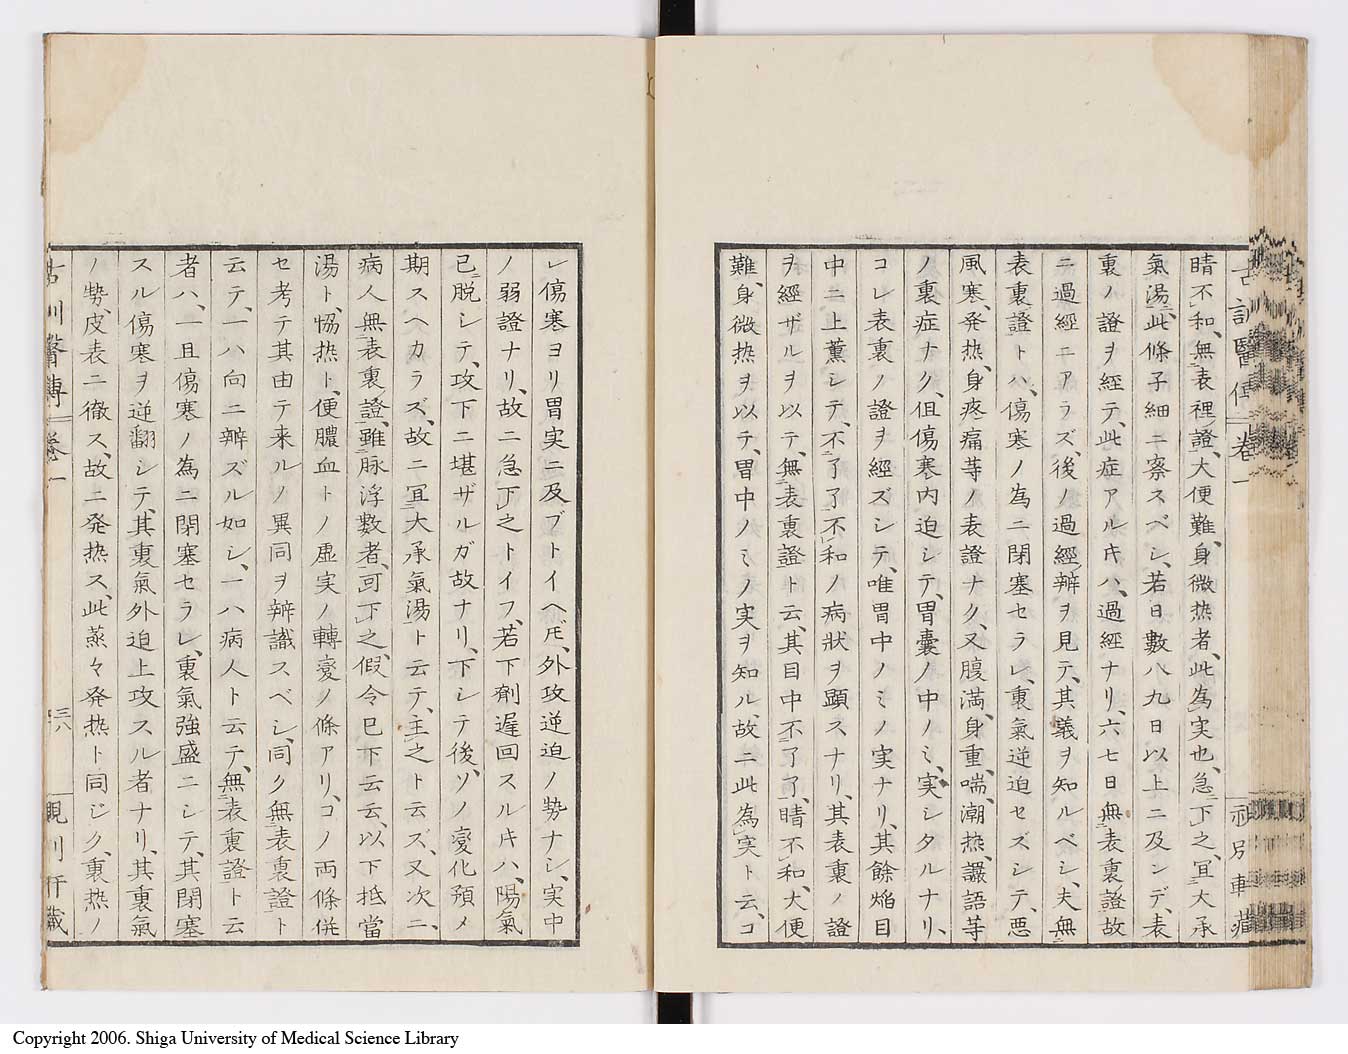 睛不和、無表裡證、大便難、身微热者、此為実也、急下之、冝大承
氣湯、此條子細ニ察スベシ、若日數八九日以上ニ及ンデ、表
裏ノ證ヲ經テ、此症アルヰハ、過經ナリ、六七日無表裏證故
ニ過經ニアラズ、後ノ過經辨ヲ見テ、其義ヲ知ルベシ、夫無
表裏證トハ、傷寒ノ為ニ閉塞セラレ、裏氣逆迫セズシテ、悪
風寒、発热、身疼痛䓁ノ表證ナク、又腹満、身重、喘、潮热、譫語等
ノ裏症ナク、但傷寒内迫シテ、胃嚢ノ中ノミ、実シタルナリ、
コレ表裏ノ證ヲ經ズシテ、唯胃中ノミノ実ナリ、其餘焔目
中ニ上薫シテ、不了了不和ノ病狀ヲ顕スナリ、其表裏ノ證
ヲ經ザルヲ以テ、無表裏證ト云、其目中不了了、睛不和、大便
難、身微热ヲ以テ、胃中ノミノ実ヲ知ル、故ニ此為実ト云、コ
レ傷寒ヨリ胃実ニ及ブトイヘ𪜈、外攻逆迫ノ势ナシ、実中
ノ弱證ナリ、故ニ急下之トイフ、若下劑遅回スルヰハ、陽氣
已脱シテ、攻下ニ堪ザルガ故ナリ、下シテ後、ソノ變化預メ
期スヘカラズ、故ニ冝大承氣湯ト云テ、主之ト云ズ、又次ニ、
病人無表裏證、雖脉浮數者、可下之、假令已下云云、以下抵當
湯ト、恊热ト、便膿血トノ虚実ノ轉變ノ條アリ、コノ両條併
セ考テ其由テ来ルノ異同ヲ辨識スベシ、同ク無表裏證ト
云テ、一ハ向ニ辨ズル如シ、一ハ病人ト云テ、無表裏證ト云
者ハ、一旦傷寒ノ為ニ閉塞セラレ、裏氣強盛ニシテ、其閉塞
スル傷寒ヲ逆翻シテ、其裏氣外迫上攻スル者ナリ、其裏氣
ノ势、皮表ニ徹ス、故ニ発热ス、此蒸々発热ト同ジク、裏热ノ
古訓醫傳 卷一 三八
Copyright 2006. Shiga University of Medical Science Library